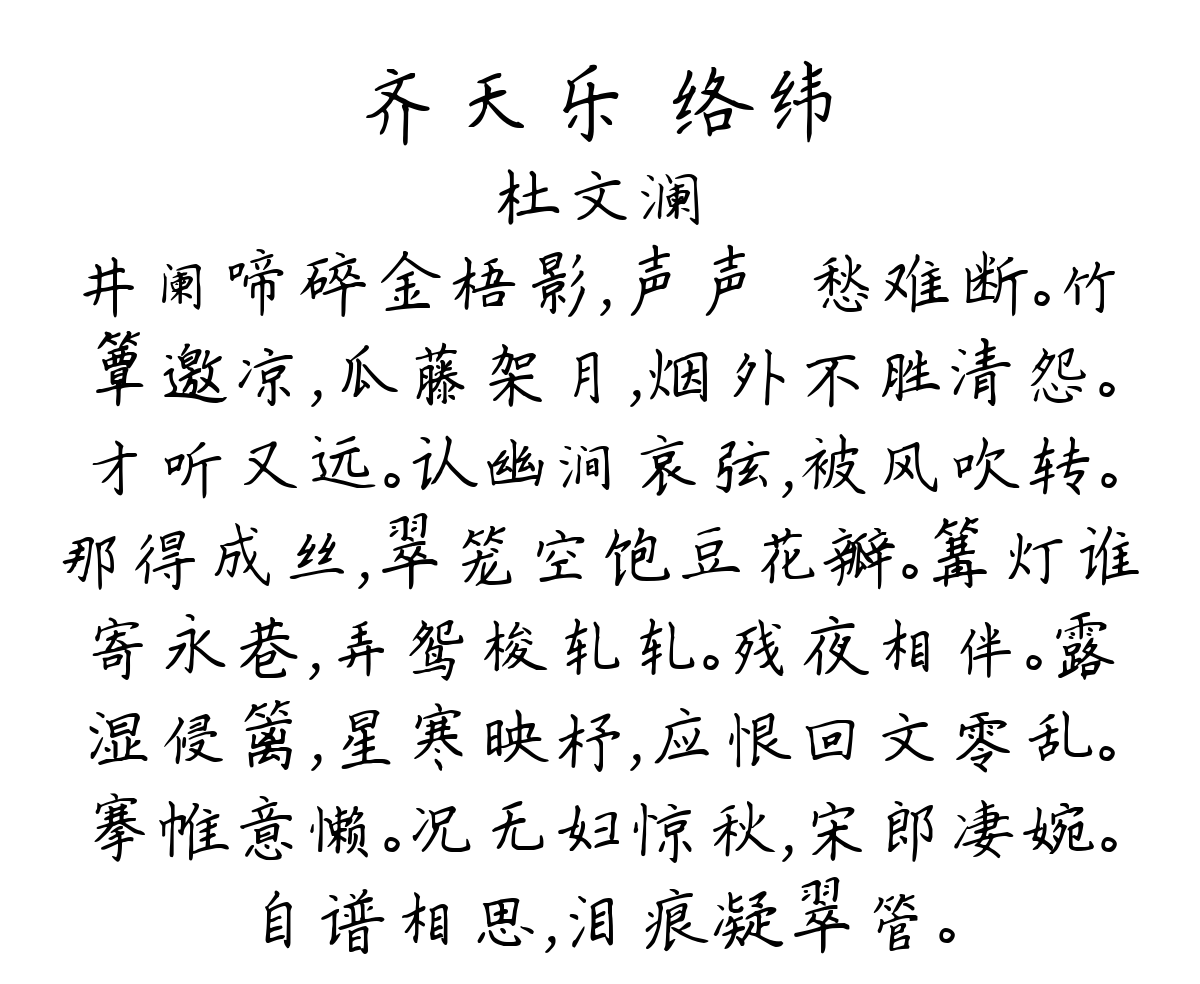 齐天乐 络纬
杜文澜
井阑啼碎金梧影,声声 愁难断。竹
簟邀凉,瓜藤架月,烟外不胜清怨。
才听又远。认幽涧哀弦,被风吹转。
那得成丝,翠笼空饱豆花瓣。篝灯谁
寄永巷,弄鸳梭轧轧。残夜相伴。露
湿侵篱,星寒映杼,应恨回文零乱。
搴帷意懒。况无妇惊秋,宋郎凄婉。
自谱相思,泪痕凝翠管。